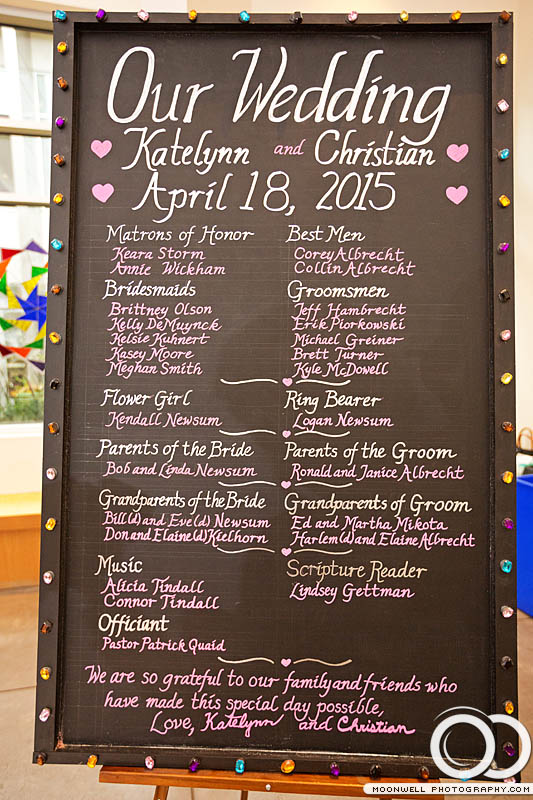 Our Wedding
Katelynn and Christian
April 18, 2015
Matrons of Honor
Keara Storm
Annie Wickham
Best Men
Corey Albrecht
Collin Albrecht
Bridesmaids
Brittney Olson
Kelly DeMuynck
Kelsie Kuhnert
Kasey Moore
Meghan Smith
Groomsmen
Jeff Hambrecht
Erik Piorkowski
Michael Greiner
Brett Turner
Kyle McDowell
Flower Girl
Kendall Newsum
Ring Bearer
Logan Newsum
Parents of the Bride
Bob and Linda Newsum
Parents of the Groom
Ronald and Janice Albrecht
Grandparents of the Bride
Bill(d) and Eve(d) Newsum
Don and Elaine(d) Kielhorn
Grandparents of Groom
Ed and Martha Mikota
Harlem(d) and Elaine Albrecht
Music
Alicia Tindall
Connor Tindall
Scripture Reader
Lindsey Gettman
Officiant
Pastor Patrick Quaid
We are so grateful to our family and friends who
have made this special day possible,
Love, Katelynn and Christian
MOONWELL PHOTOGRAPHY.COM